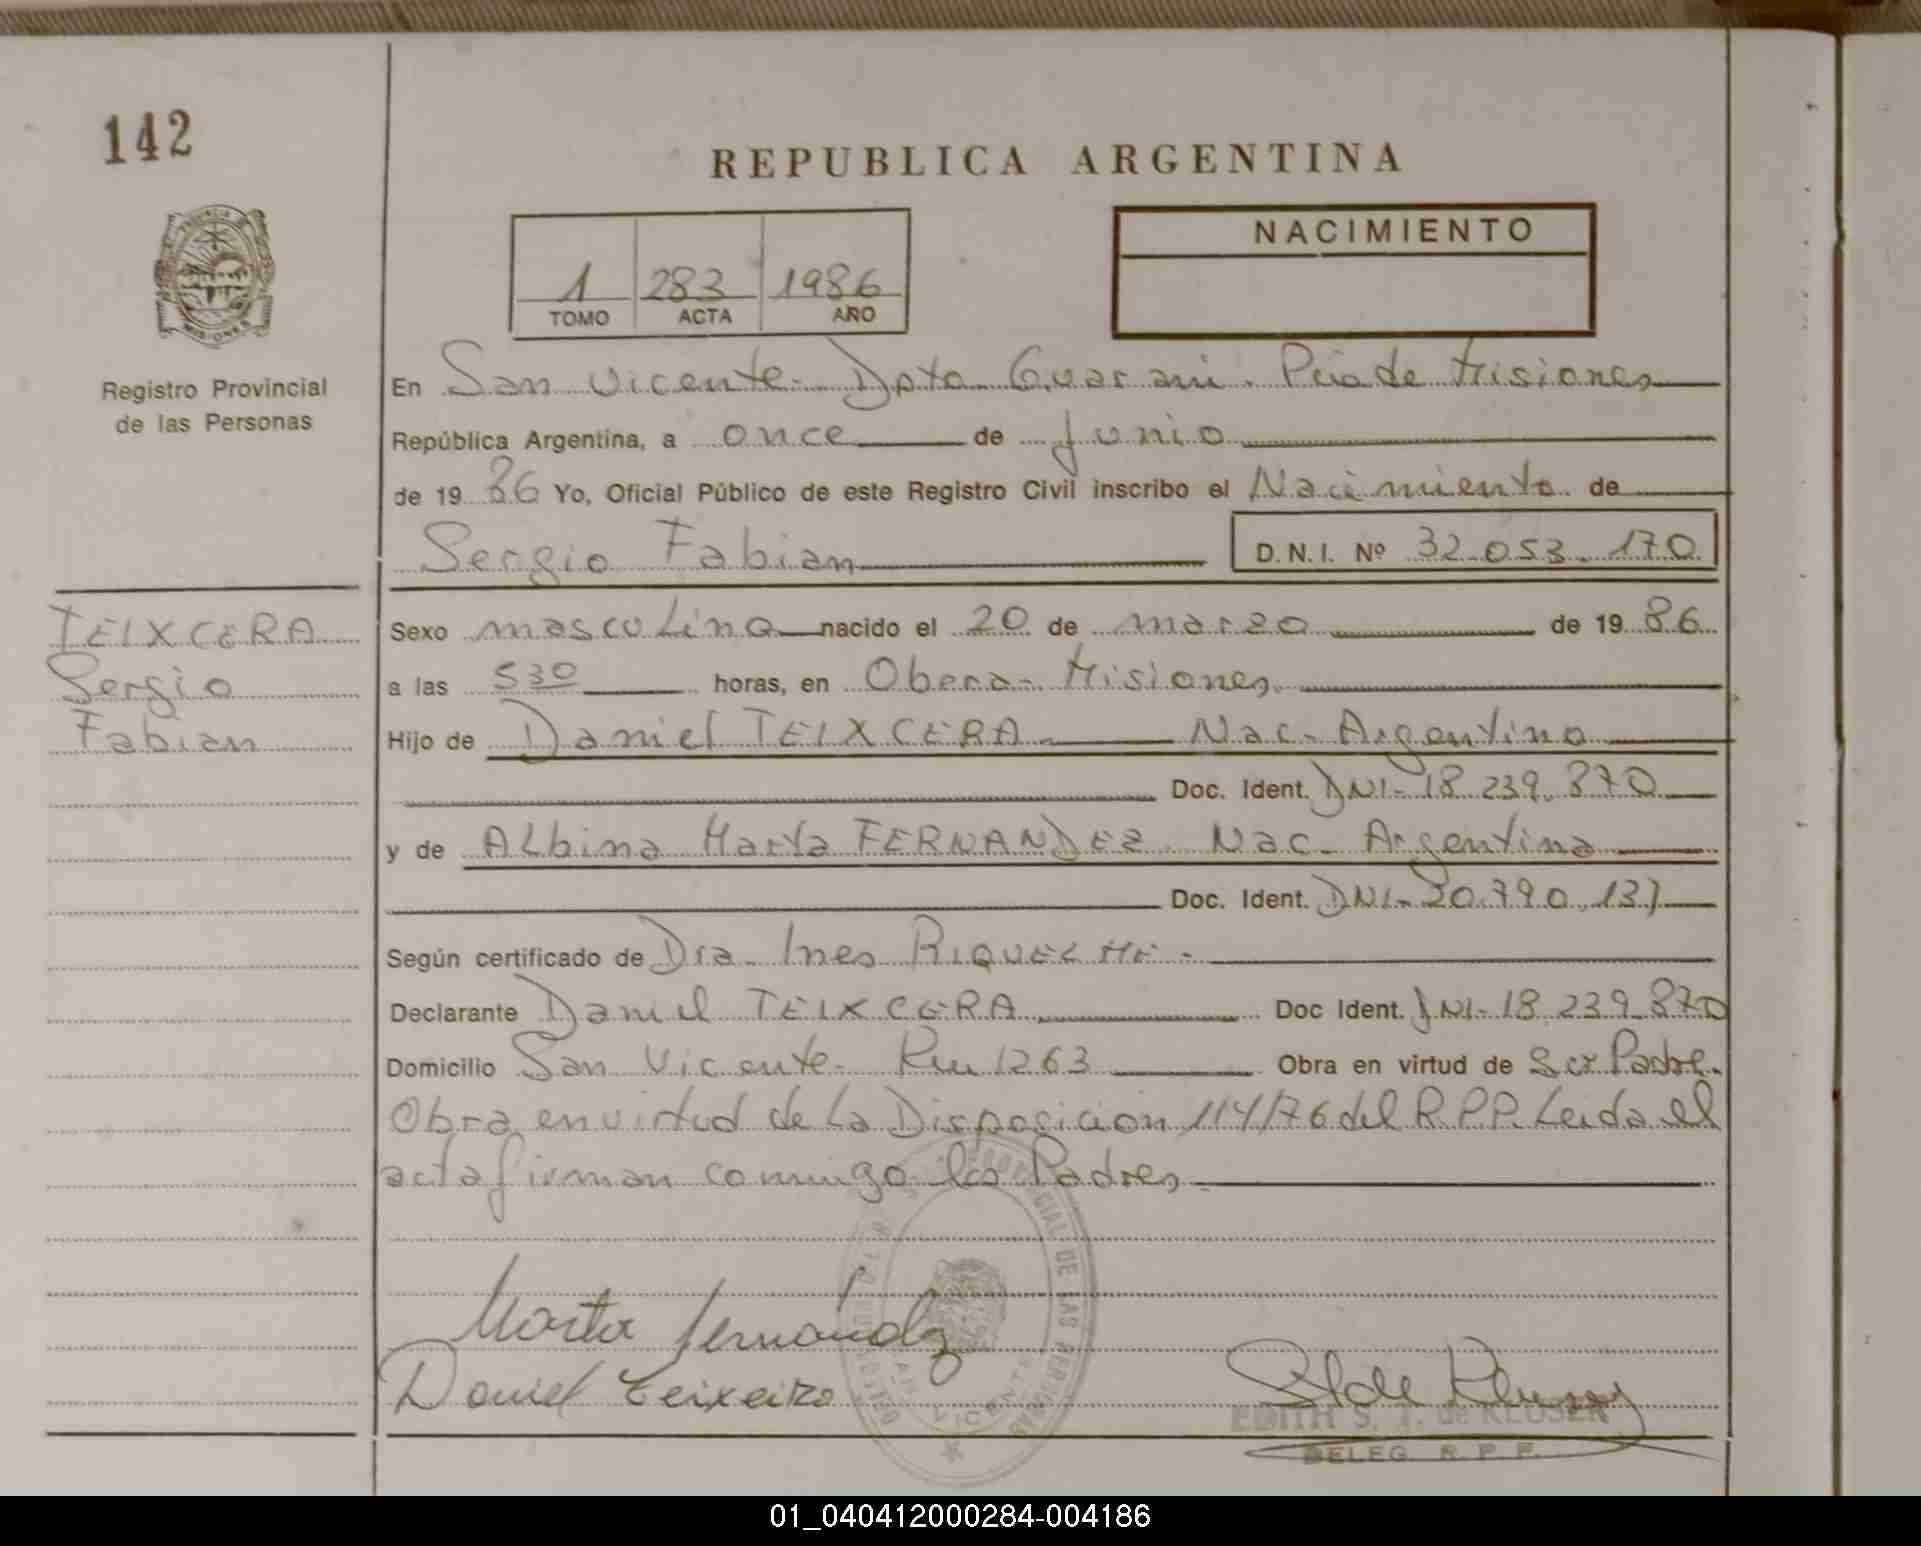 142
REPUBLICA ARGENTINA
PROVINCIA DE
MISIONES
Registro Provincial
de las Personas
1 283 1986
TOMO ACTA AÑO
NACIMIENTO
En San Vicente - Dpto Guarani - Pcia de Misiones
República Argentina, a once de Junio
de 19 86 Yo, Oficial Público de este Registro Civil inscribo el Nacimiento de
Sergio Fabian D.N.I. Nº 32.053.170
TEIXCERA
Sergio
Fabian
Sexo masculino nacido el 20 de marzo de 19 86
a las 530 horas, en Obera - Misiones.
Hijo de Daniel TEIXCERA - Nac - Argentino
Doc. Ident. DNI - 18.239.870
y de Albina Marta FERNANDEZ. Nac - Argentina
Doc. Ident. DNI - 20.790.137
Según certificado de Dra - Ines RIQUELME -
Declarante Daniel TEIXCERA Doc Ident. DNI - 18.239.870
Domicilio San Vicente - Km 1263 Obra en virtud de Ser Padre.
Obra en virtud de la Disposicion 114/76 del R.P.P. Leida el
acta firman conmigo los Padres
Marta Fernández
Daniel Teixeira
EDITH S. J. de KLUSER
DELEG. R. P. P.
PROVINCIAL DE LAS PERSONAS
SAN VICENTE
01_040412000284-004186